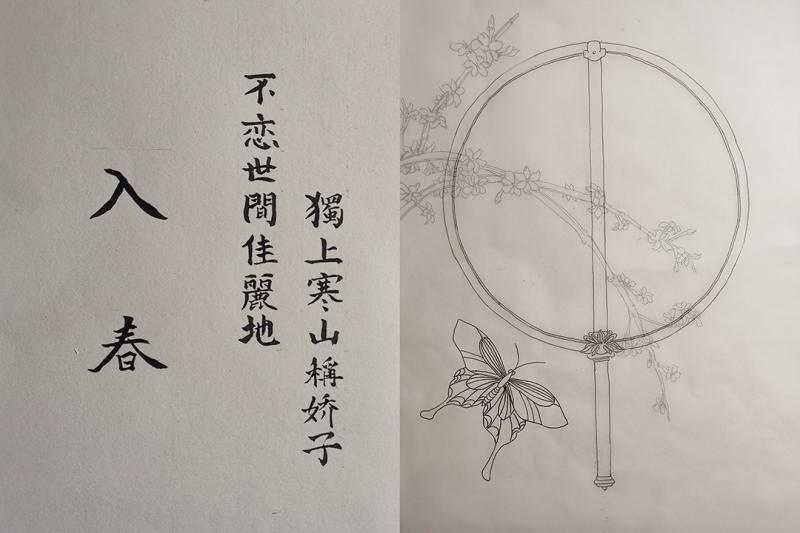 獨上寒山稱娇子
不恋世間佳麗地
入春